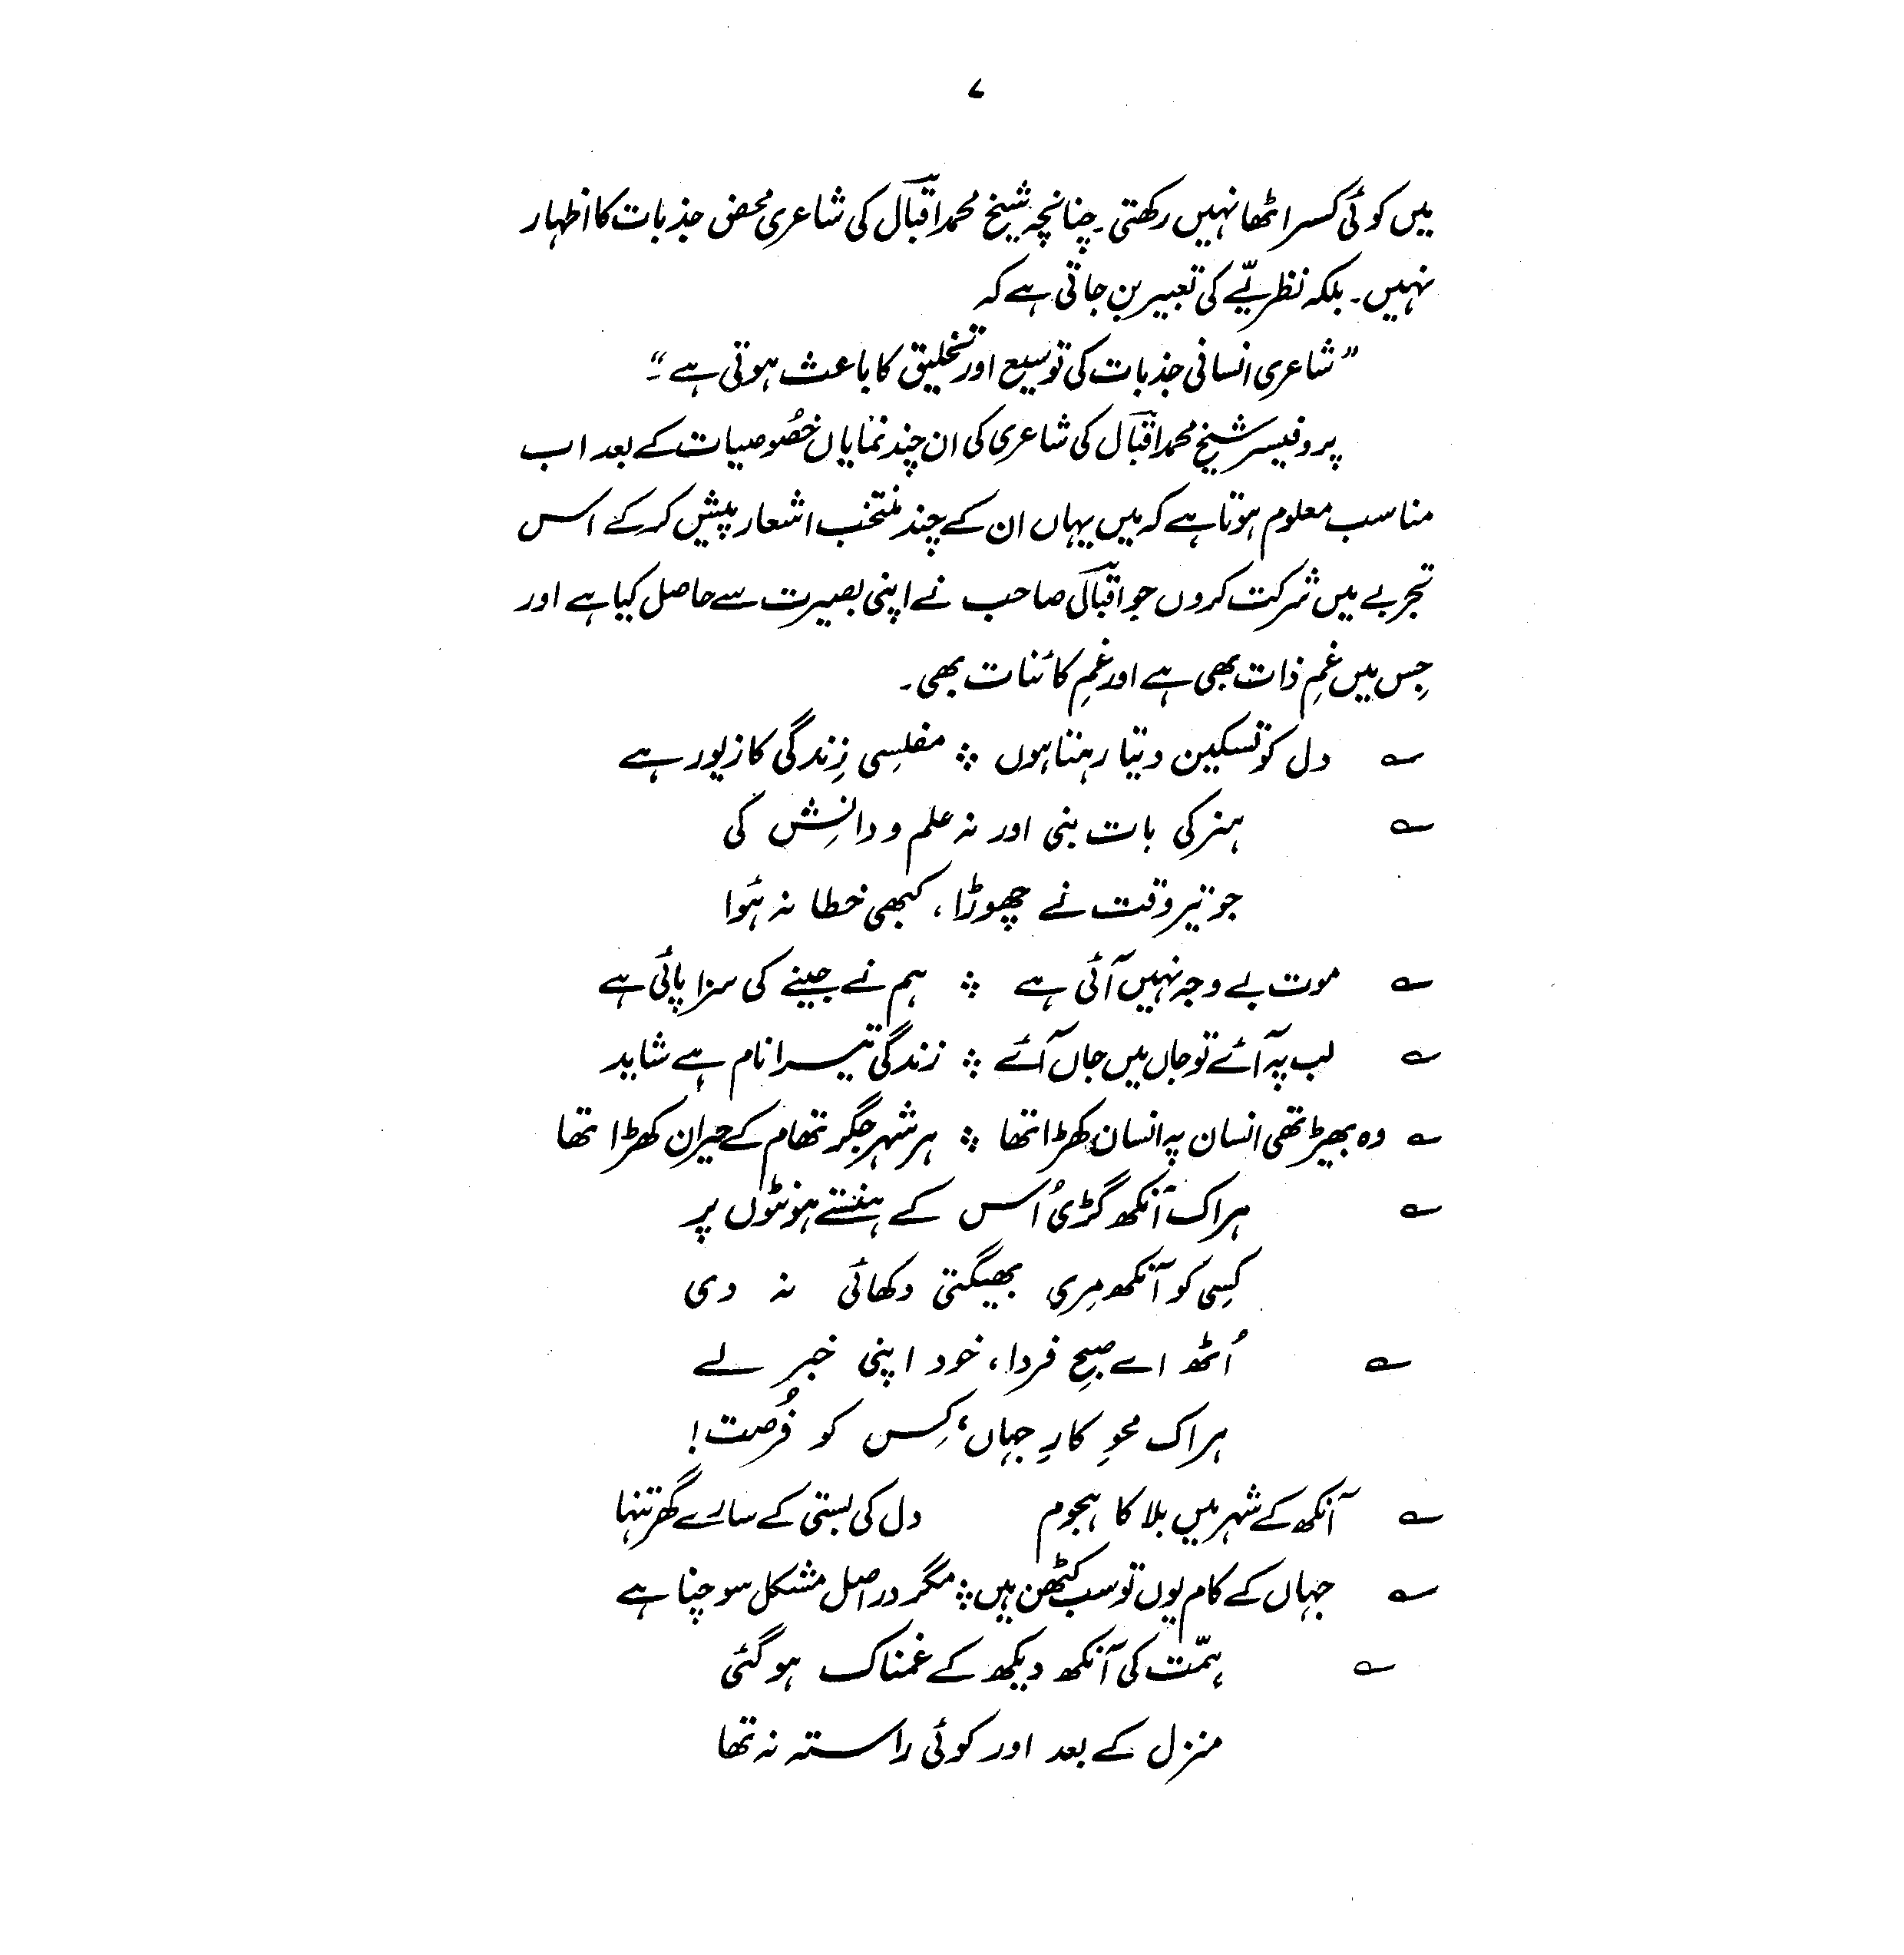 ۷
میں کوئی کسر اٹھا نہیں رکھتی۔ چنانچہ شیخ محمد اقبالؔ کی شاعری محض جذبات کا اظہار
نہیں۔ بلکہ نظریّے کی تعبیر بن جاتی ہے کہ
”شاعری انسانی جذبات کی توسیع اور تخلیق کا باعث ہوتی ہے۔“
پروفیسر شیخ محمد اقبالؔ کی شاعری کی ان چند نمایاں خصُوصیات کے بعد اب
مناسب معلوم ہوتا ہے کہ میں یہاں ان کے چند منتخب اشعار پیش کر کے اس
تجربے میں شرکت کروں جو اقبالؔ صاحب نے اپنی بصیرت سے حاصل کیا ہے اور
جِس میں غمِ ذات بھی ہے اور غمِ کائنات بھی۔
؎ دل کو تسکین دیتا رہتا ہوں ؞ مفلسِی زِندگی کا زیور ہے
؎ ہنر کی بات بنی اور نہ علم و دانِش کی
جو تیر وقت نے چھوڑا، کبھی خطا نہ ہُوا
؎ موت بے وجہ نہیں آئی ہے ؞ ہم نے جینے کی سزا پائی ہے
؎ لب پہ آئے تو جاں میں جاں آئے ؞ زندگی تیرا نام ہے شاید
؎ وہ بھیڑ تھی انسان پہ انسان کھڑا تھا ؞ ہر شہر جگر تھام کے حیران کھڑا تھا
؎ ہر اک آنکھ گڑی اُس کے ہنستے ہونٹوں پر
کِسی کو آنکھ مِری بھیگتی دکھائی نہ دی
؎ اُٹھ اے صبحِ فردا، خود اپنی خبر لے
ہر اک محوِ کارِ جہاں، کِس کو فُرصت!
؎ آنکھ کے شہر میں بلا کا ہجوم دل کی بستی کے سارے گھر تنہا
؎ جہاں کے کام یوں تو سب کٹھن ہیں ؞ مگر دراصل مشکل سوچنا ہے
؎ ہِمّت کی آنکھ دیکھ کے غمناک ہو گئی
منزل کے بعد اور کوئی راستہ نہ تھا